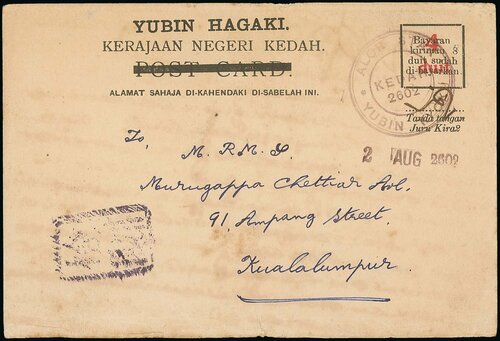 YUBIN HAGAKI.
KERAJAAN NEGERI KEDAH.
POST CARD.
ALAMAT SAHAJA DI-KAHENDAKI DI-SABELAH INI.
Bayaran
kiriman 8
duit sudah
di-bayarkan.
4
duit
Tanda tangan
Juru Kira2
KEDAH
2602
YUBIN
2 AUG 2602
To
M. R. M. S.
Murugappa Chettiar Avl.
91, Ampang Street,
Kualalumpur.